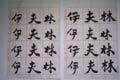 伊夫林 伊夫林
伊夫林 伊夫林
伊夫林 伊夫林
伊夫林 伊夫林